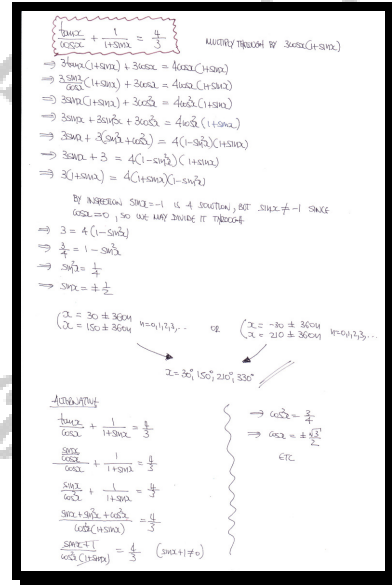 tanx/cosx + 1/(1+sinx) = 4/3 MULTIPLY THROUGH BY 3cosx(1+sinx)
⇒ 3tanx(1+sinx) + 3cosx = 4cosx(1+sinx)
⇒ 3sinx/cosx (1+sinx) + 3cosx = 4cosx(1+sinx)
⇒ 3sinx(1+sinx) + 3cos²x = 4cos²x(1+sinx)
⇒ 3sinx + 3sin²x + 3cos²x = 4cos²x(1+sinx)
⇒ 3sinx + 3(sin²x+cos²x) = 4(1-sin²x)(1+sinx)
⇒ 3sinx + 3 = 4(1-sin²x)(1+sinx)
⇒ 3(1+sinx) = 4(1+sinx)(1-sin²x)
BY INSPECTION sinx=-1 IS A SOLUTION, BUT sinx≠-1 SINCE
cosx=0, SO WE MAY DIVIDE IT THROUGH
⇒ 3 = 4(1-sin²x)
⇒ 3/4 = 1-sin²x
⇒ sin²x = 1/4
⇒ sinx = ± 1/2
(x = 30 ± 360n
x = 150 ± 360n n=0,1,2,3,... OR (x = -30 ± 360n
x = 210 ± 360n n=0,1,2,3,...
x = 30°, 150°, 210°, 330°
ALTERNATIVE
tanx/cosx + 1/(1+sinx) = 4/3
(sinx/cosx)/cosx + 1/(1+sinx) = 4/3
sinx/cos²x + 1/(1+sinx) = 4/3
(sinx+sin²x+cos²x)/(cos²x(1+sinx)) = 4/3
(sinx+1)/(cos²x(1+sinx)) = 4/3 (sinx+1≠0)
⇒ cos²x = 3/4
⇒ cosx = ± √3/2
ETC